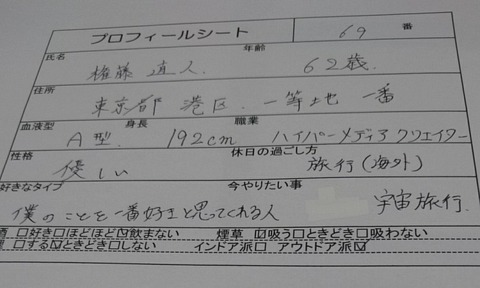 プロフィールシート 69 番
氏名 年齢
権藤 直人. 62歳.
住所
東京都 港区. 一等地 一番
血液型 身長 職業
A型. 192cm ハイパーメディアクリエイター
性格 休日の過ごし方
優しい 旅行(海外)
好きなタイプ 今やりたい事
僕のことを一番好きと思ってくれる人 宇宙旅行.
酒 □好き□ほどほど☑飲まない 煙草 ☑吸う□ときどき□吸わない
□する☑ときどき□しない インドア派□ アウトドア派☑